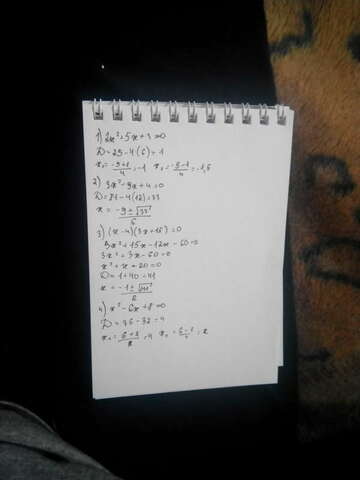 1) 2x²+5x+3=0
D=25-4(6)=1
x₁=-5+1/4=-1 x₂=-5-1/4=-1,5
2) 3x²-9x+4=0
D=81-4(12)=33
x=-9±√33/6
3) (x-4)(3x+15)=0
3x²+15x-12x-60=0
3x²+3x-60=0
x²+x-20=0
D=1+40=41
x=-1±√41/2
4) x²-6x+8=0
D=36-32=4
x₁=6+2/2=4 x₂=6-2/2=2